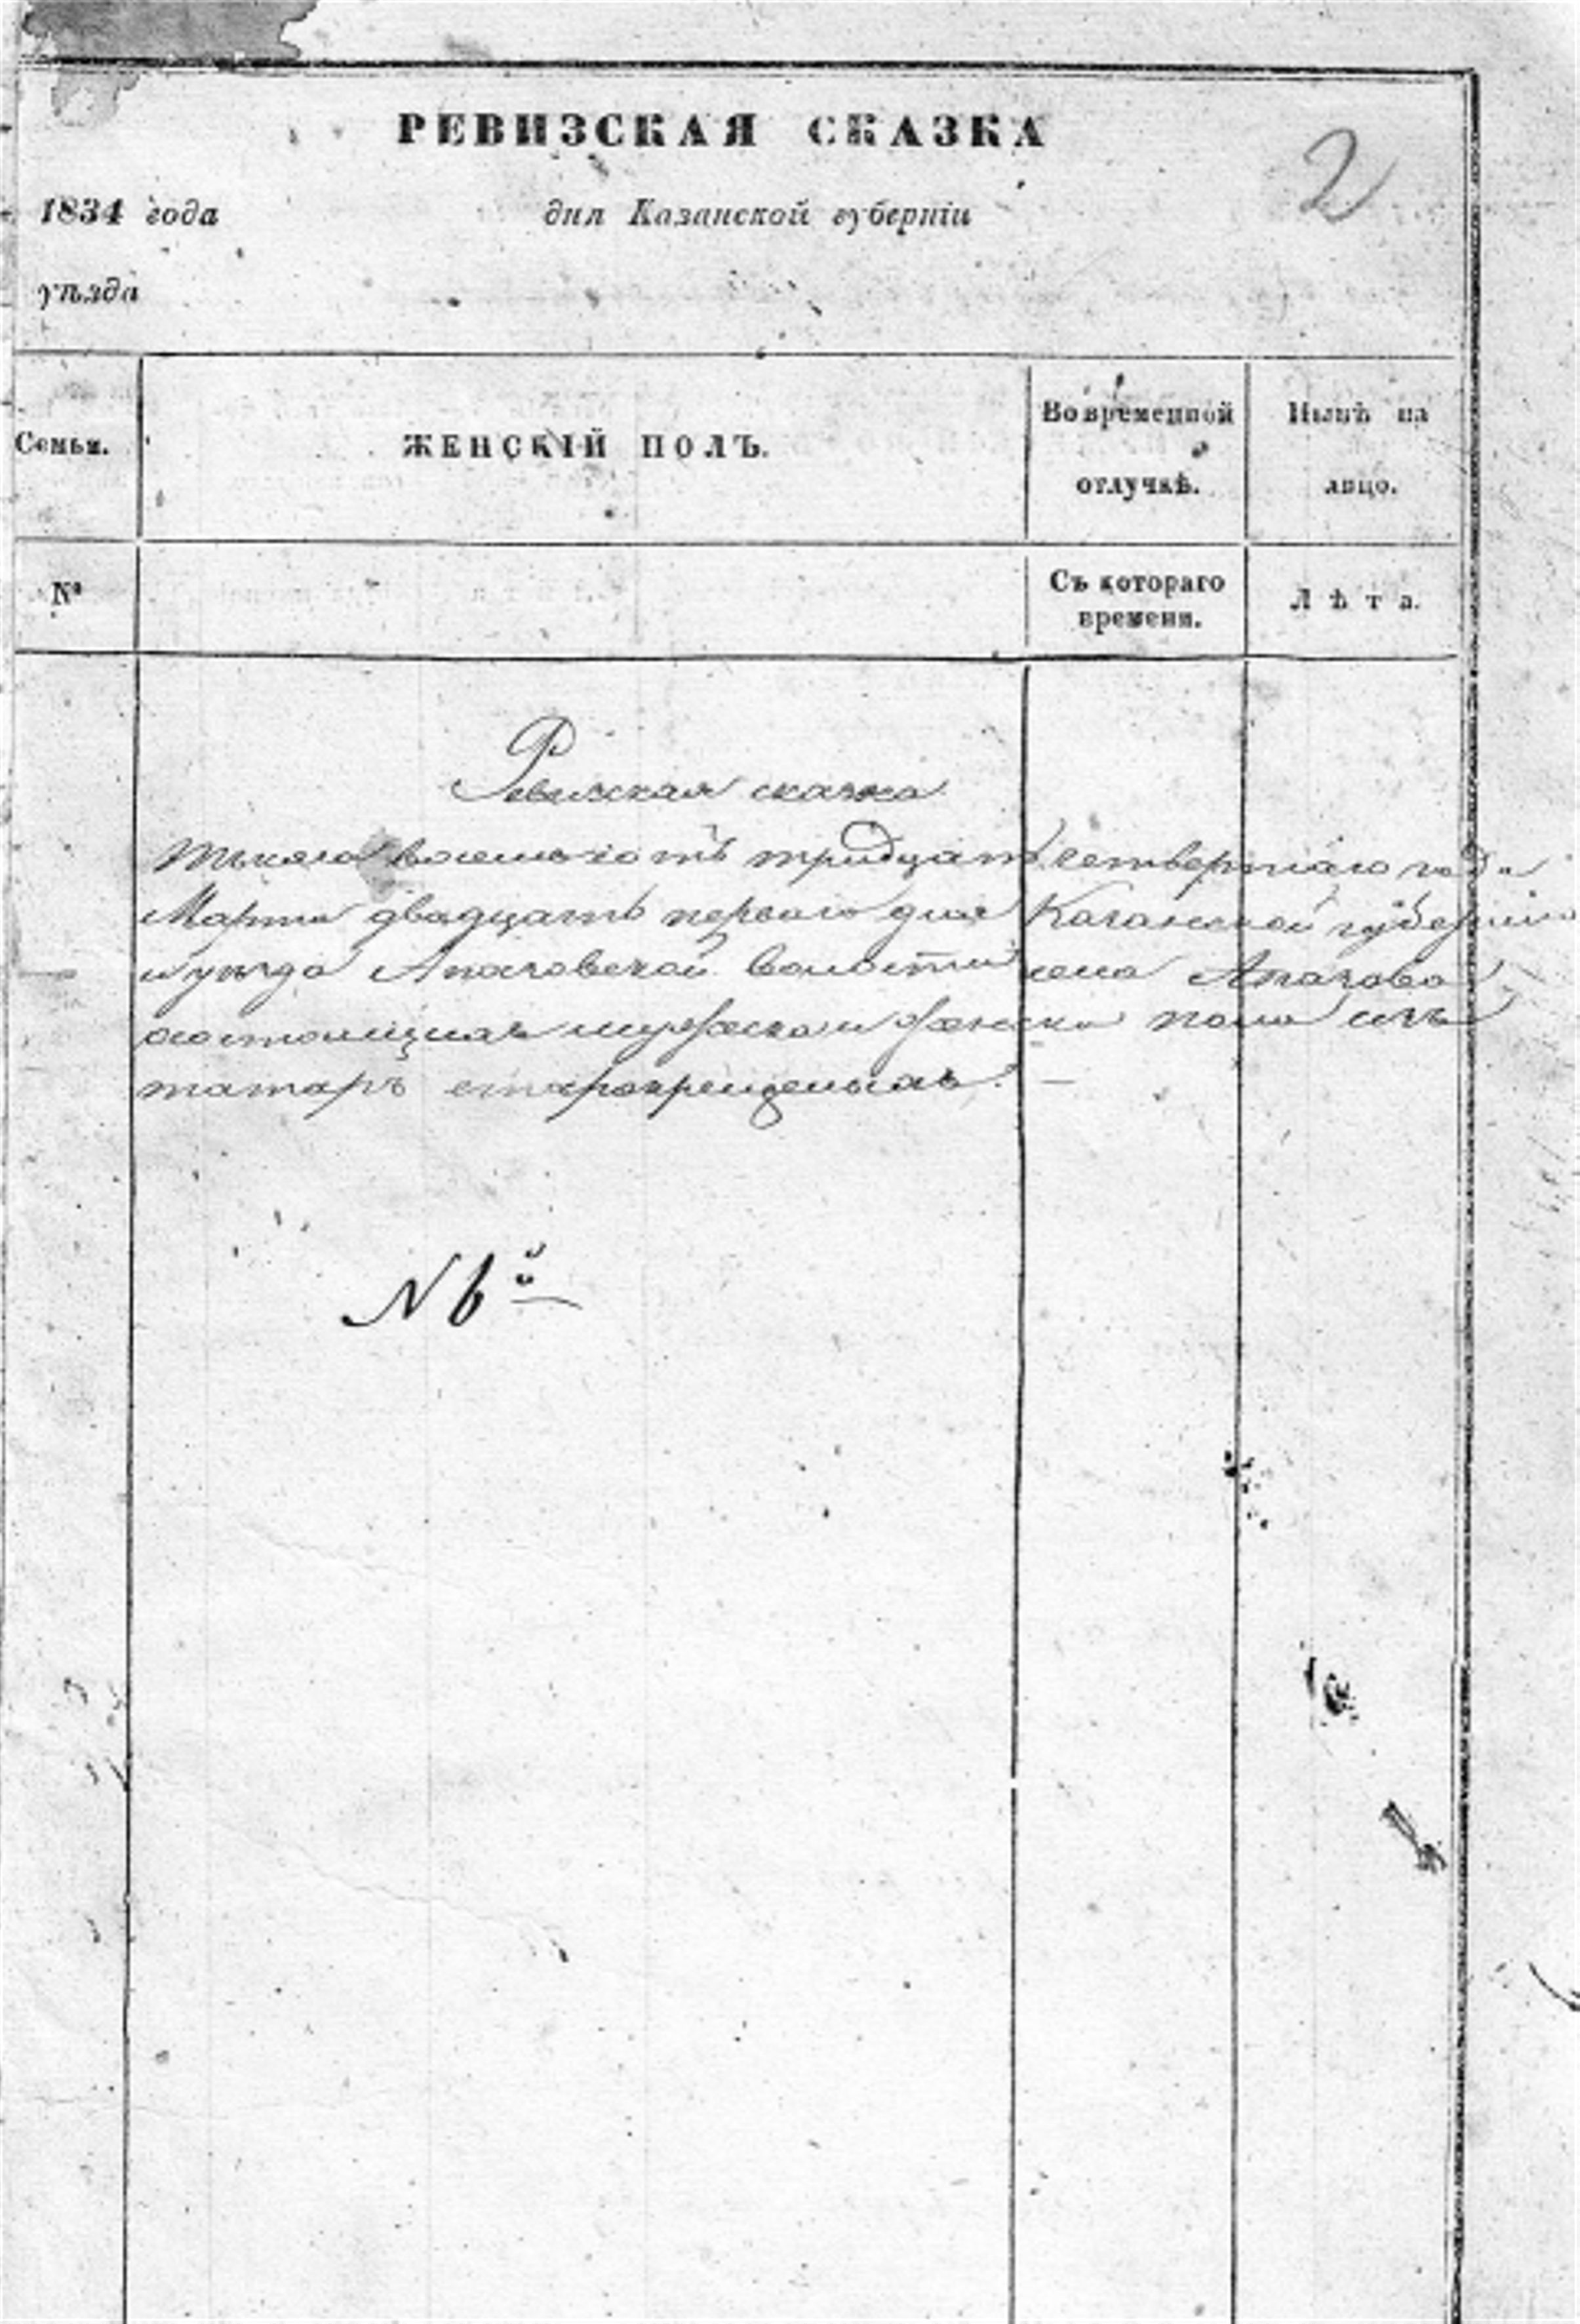 РЕВИЗСКАЯ СКАЗКА
2
1834 года дня Казанской губерніи
уѣзда
Семьи. ЖЕНСКІЙ ПОЛЪ. Во временной отлучкѣ. Нынѣ на лицо.
№ Съ котораго времени. Лѣта.
Ревизская сказка
Тысяча восемьсотъ тридцать четвертаго года
Марта двадцать перваго дня Казанской губерніи
и уѣзда Апазовской волости села Апазова
состоящихъ мужеска и женска пола изъ
татаръ старокрещеныхъ. —
N 6й